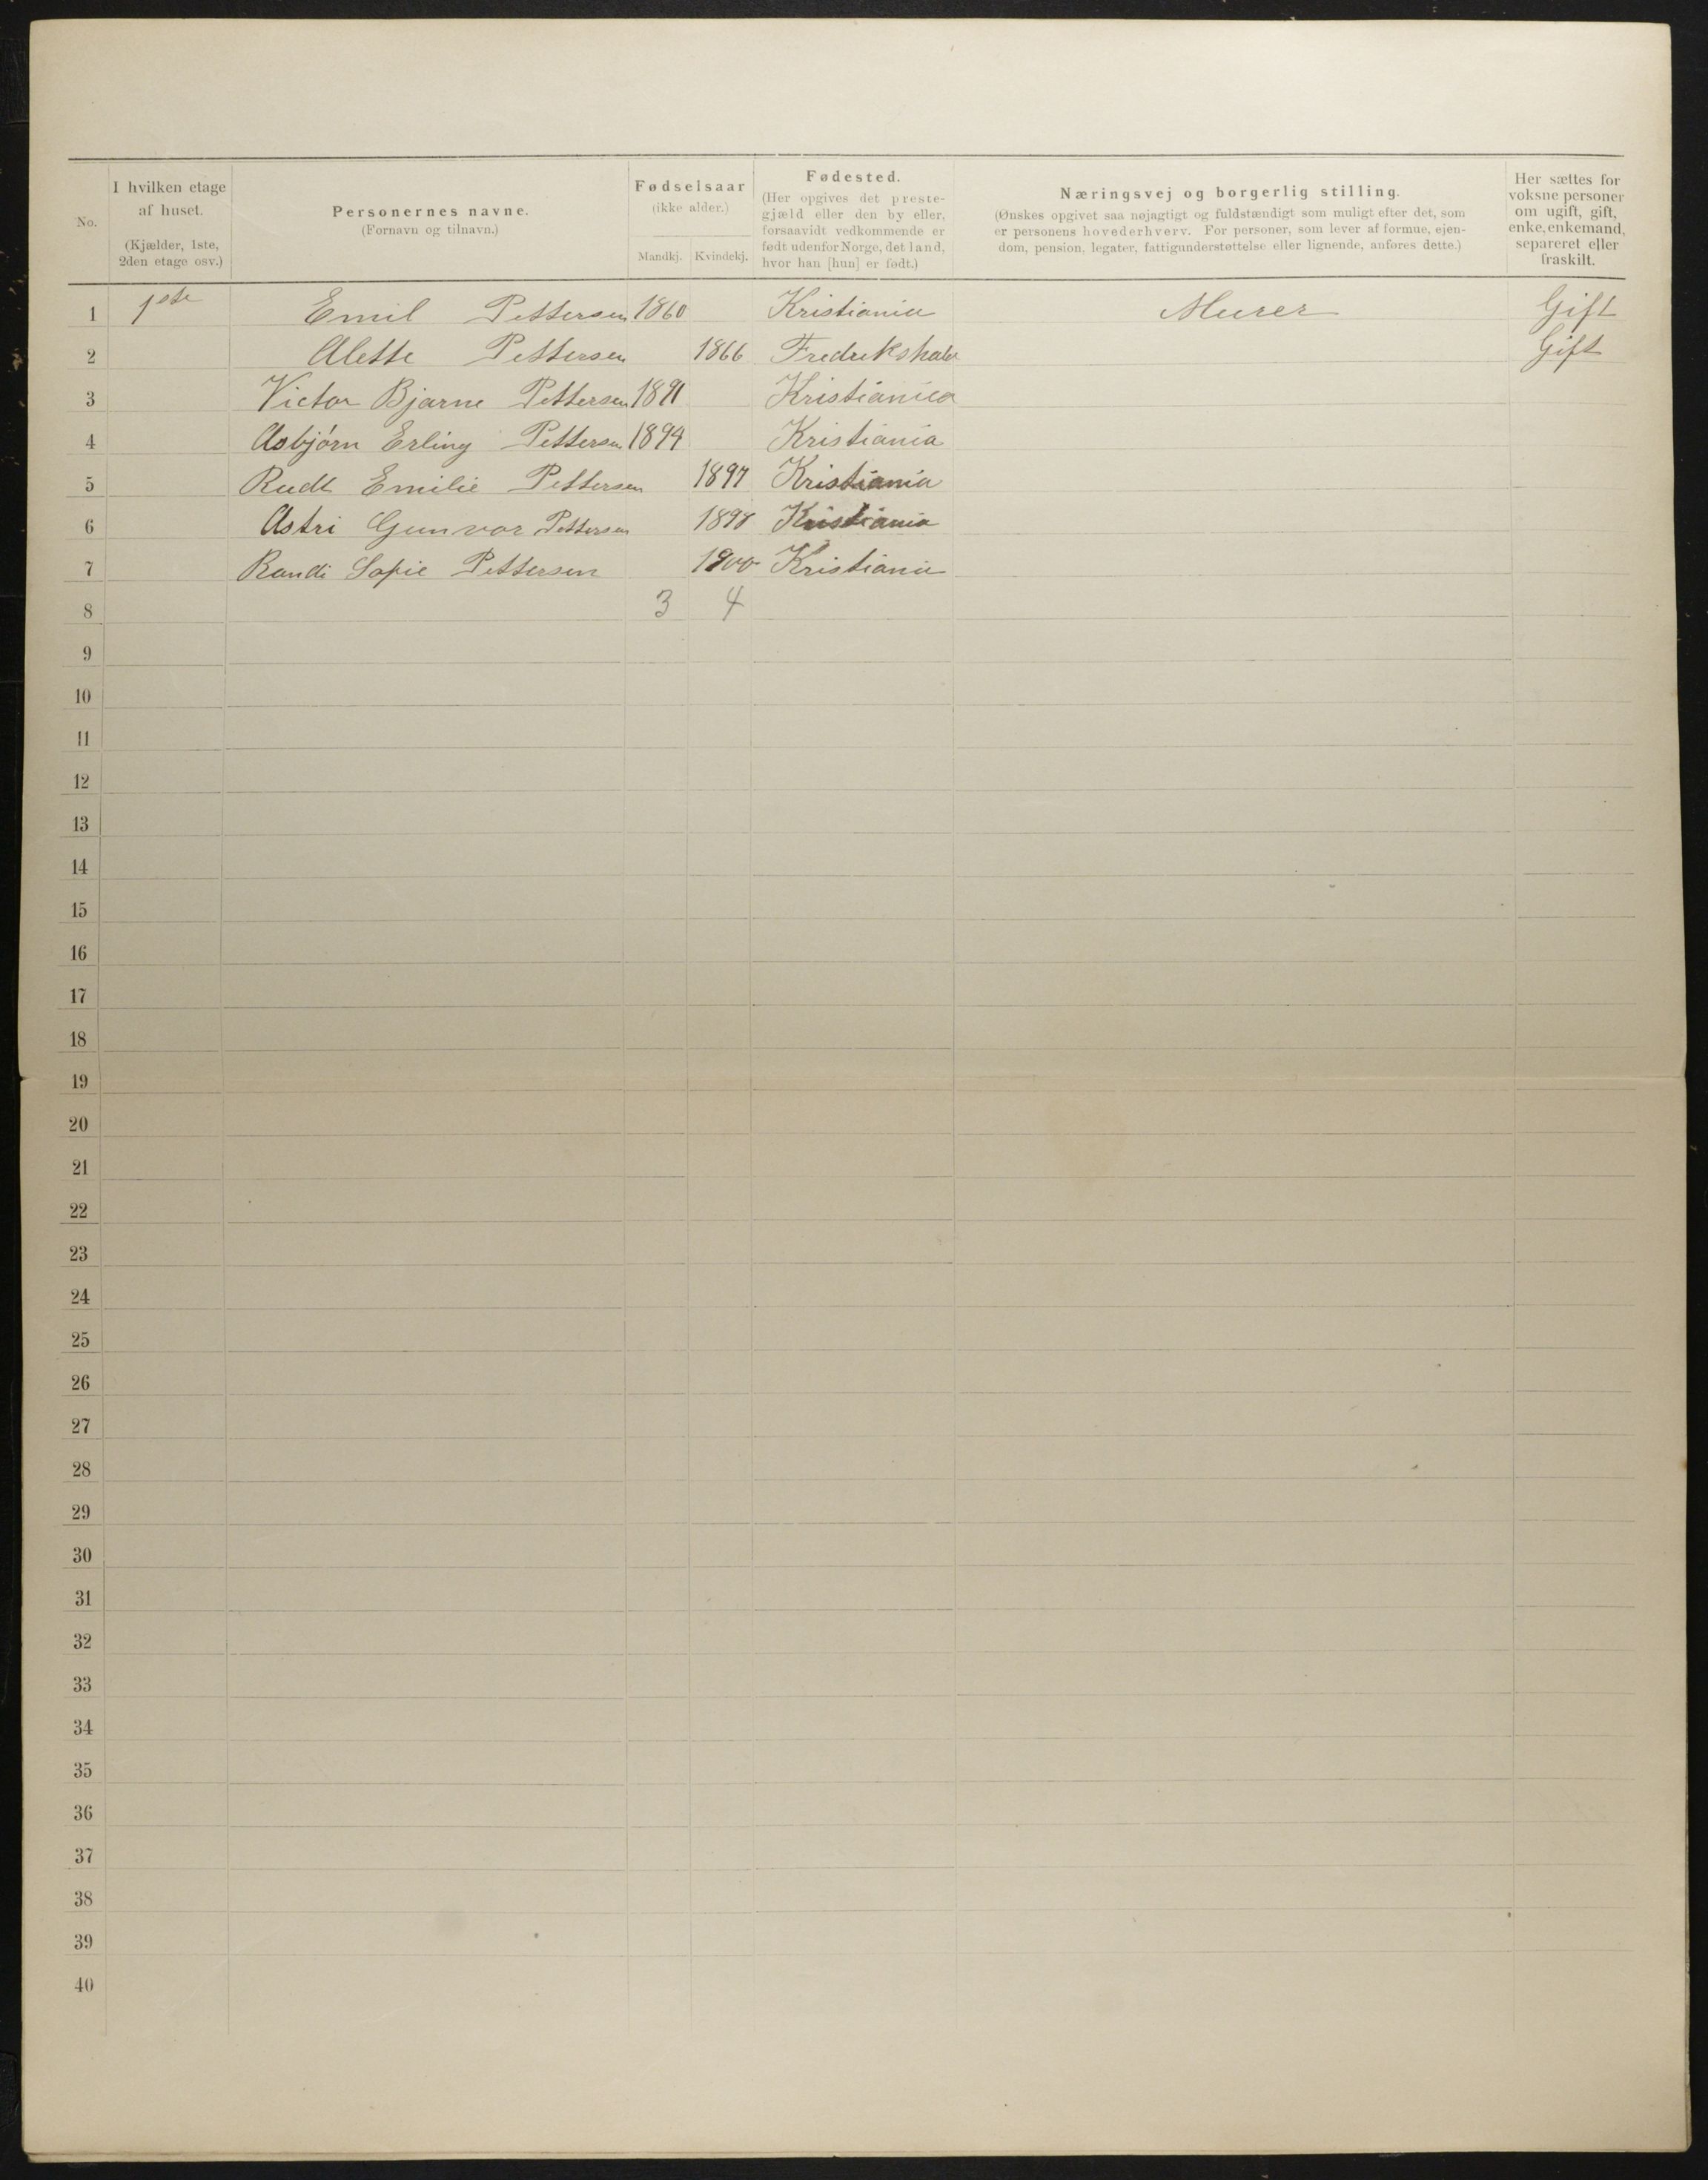 No.
I hvilken etage af huset.
(Kjælder, 1ste, 2den etage osv.)
Personernes navne.
(Fornavn og tilnavn.)
Fødselsaar
(ikke alder.)
Mandkj. Kvindekj.
Fødested.
(Her opgives det prestegjæld eller den by eller, forsaavidt vedkommende er født udenfor Norge, det land, hvor han [hun] er født.)
Næringsvej og borgerlig stilling.
(Ønskes opgivet saa nøjagtigt og fuldstændigt som muligt efter det, som er personens hovederhverv. For personer, som lever af formue, ejendom, pension, legater, fattigunderstøttelse eller lignende, anføres dette.)
Her sættes for voksne personer om ugift, gift, enke, enkemand, separeret eller fraskilt.
1 1ste Emil Pettersen 1860 Kristiania Murer Gift
2 Alette Pettersen 1866 Fredrikshald Gift
3 Victor Bjarne Pettersen 1891 Kristiania
4 Asbjörn Erling Pettersen 1894 Kristiania
5 Rudt Emilie Pettersen 1897 Kristiania
6 Astri Gunvor Pettersen 1898 Kristiania
7 Randi Sofie Pettersen 1900 Kristiania
8 3 4
9
10
11
12
13
14
15
16
17
18
19
20
21
22
23
24
25
26
27
28
29
30
31
32
33
34
35
36
37
38
39
40